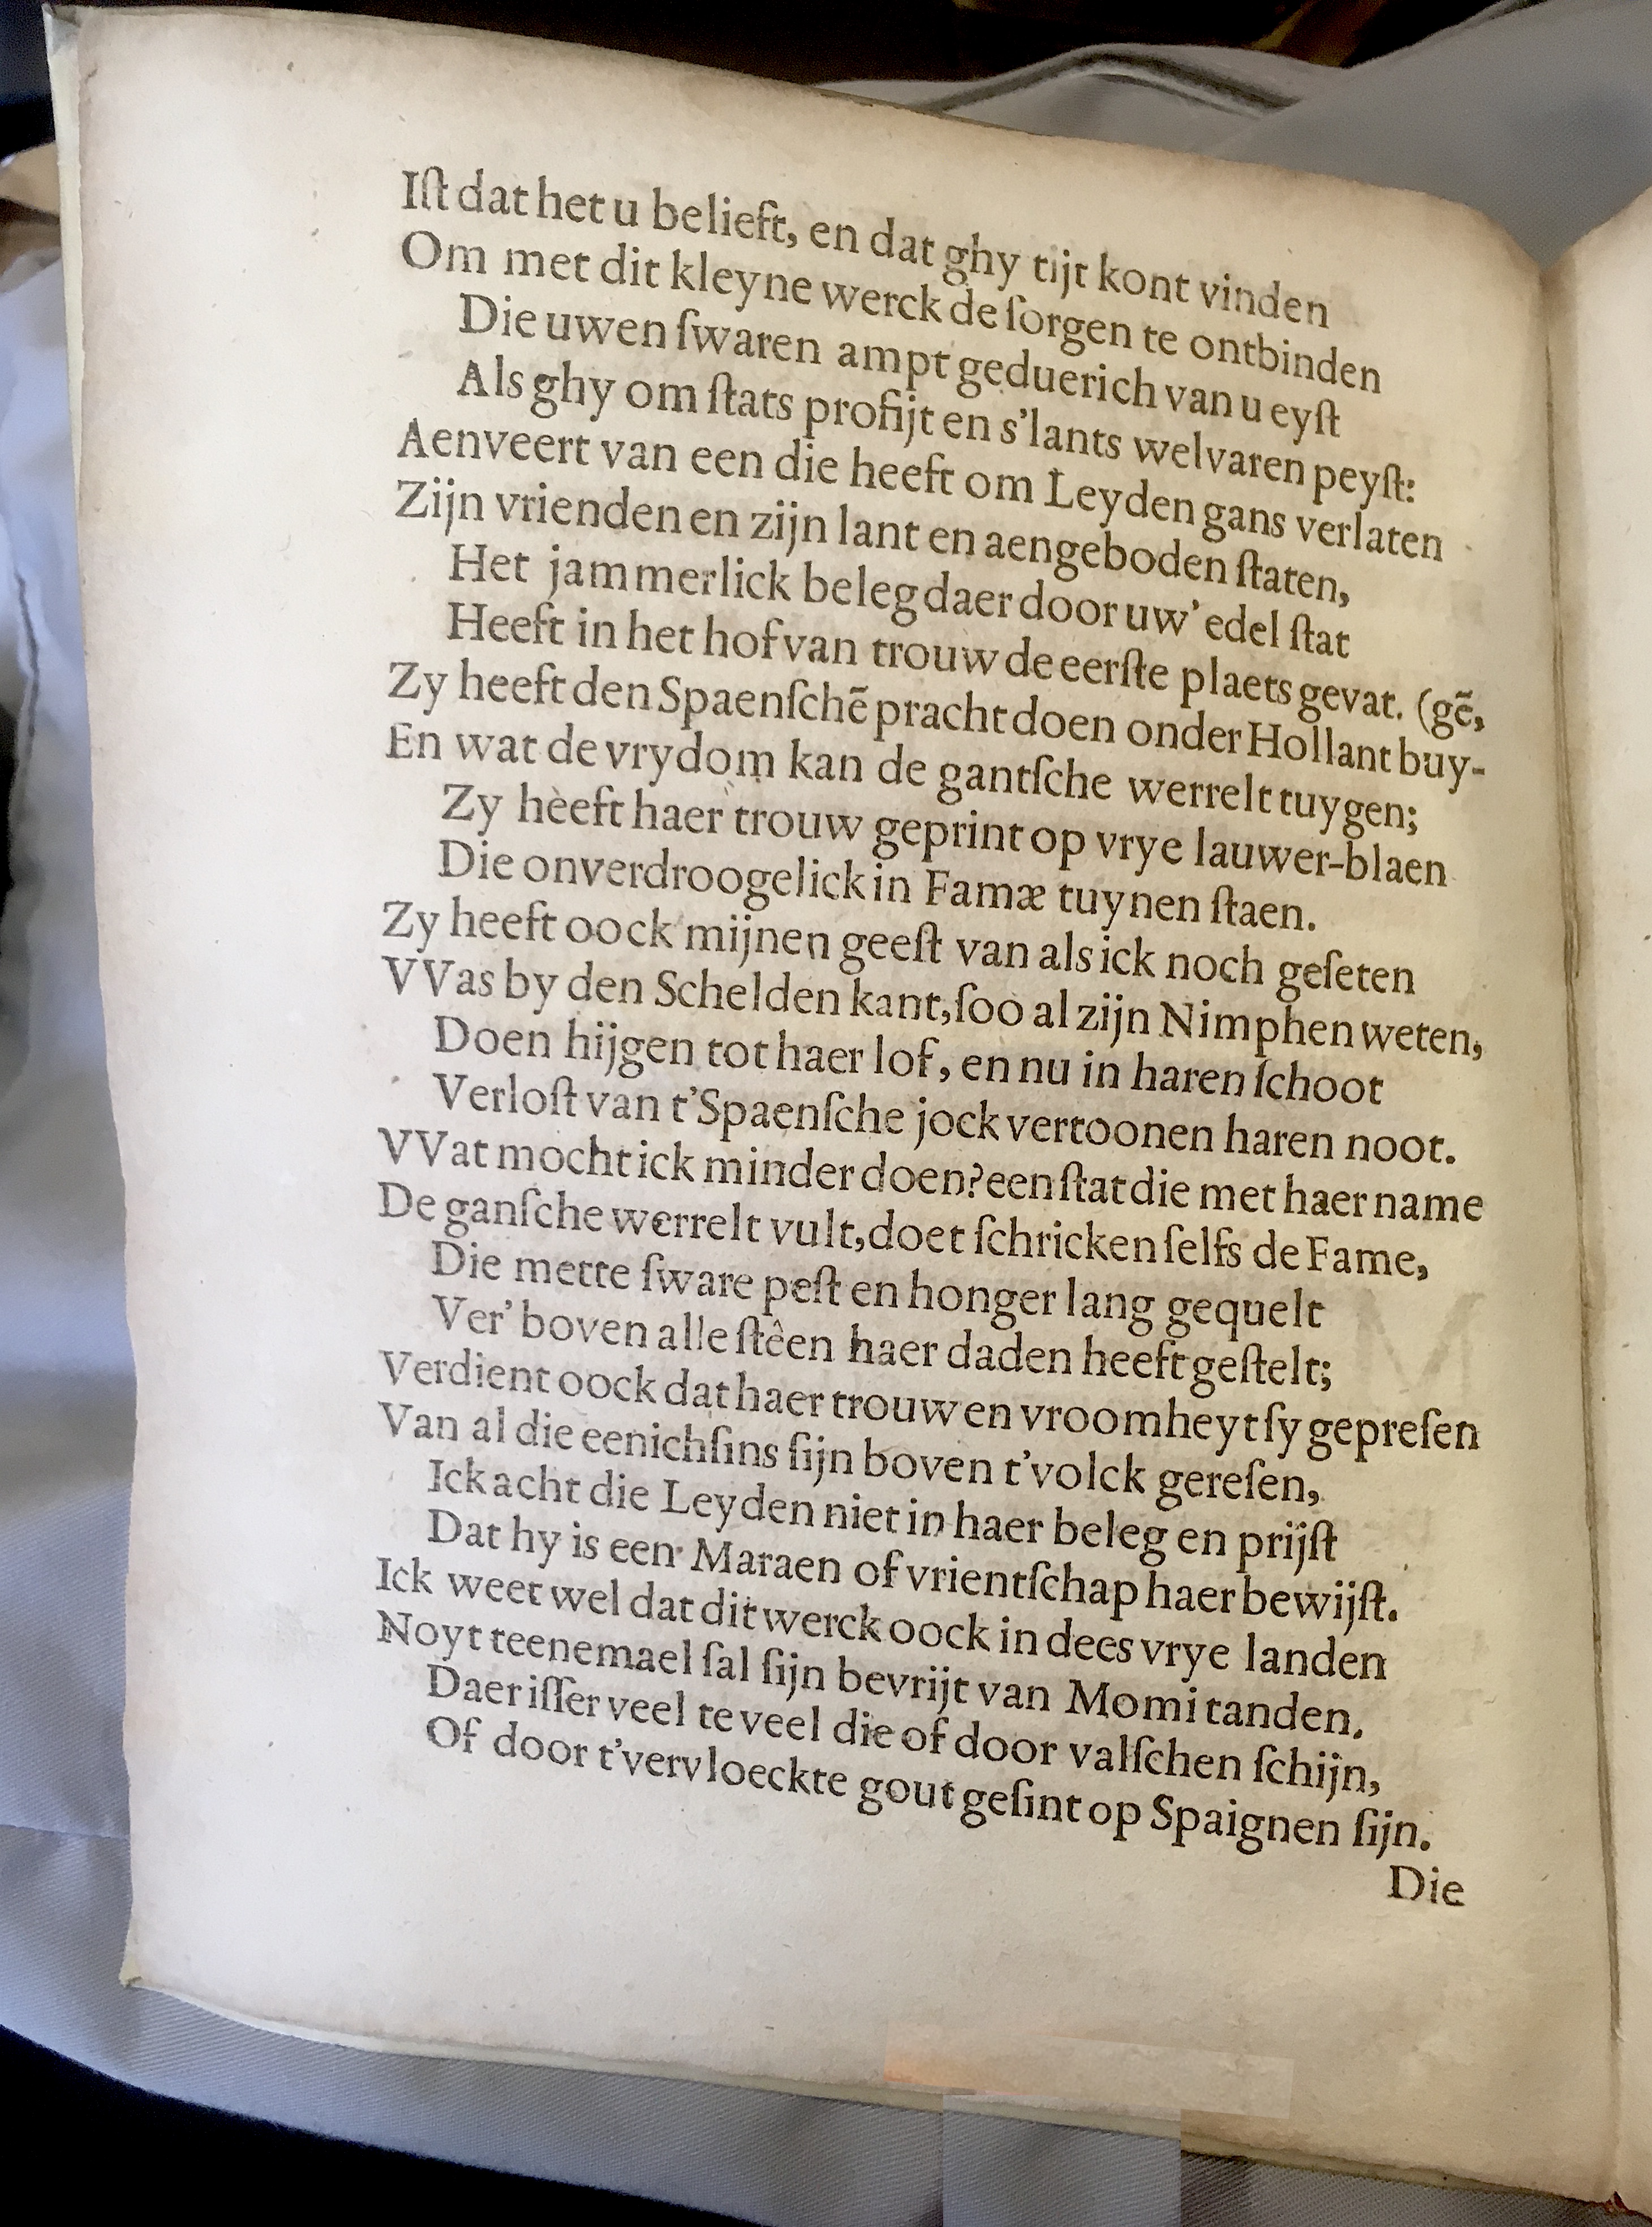 Iſt dat het u belieft, en dat ghy tijt kont vinden
Om met dit kleyne werck de ſorgen te ontbinden
Die uwen ſwaren ampt geduerich van u eyſt
Als ghy om ſtats profijt en s'lants welvaren peyſt:
Aenveert van een die heeft om Leyden gans verlaten
Zijn vrienden en zijn lant en aengeboden ſtaten,
Het jammerlick beleg daer door uw' edel ſtat
Heeft in het hof van trouw de eerſte plaets gevat. (gē,
Zy heeft den Spaenſchē pracht doen onder Hollant buy-
En wat de vrydom kan de gantſche werrelt tuygen;
Zy heeft haer trouw geprint op vrye lauwer-blaen
Die onverdroogelick in Famæ tuynen ſtaen.
Zy heeft oock mijnen geeſt van als ick noch geſeten
VVas by den Schelden kant, ſoo al zijn Nimphen weten,
Doen hijgen tot haer lof, en nu in haren ſchoot
Verloſt van t'Spaenſche jock vertoonen haren noot.
VVat mocht ick minder doen? een ſtat die met haer name
De ganſche werrelt vult, doet ſchricken ſelfs de Fame,
Die mette ſware peſt en honger lang gequelt
Ver' boven alle ſtêen haer daden heeft geſtelt;
Verdient oock dat haer trouw en vroomheyt ſy gepreſen
Van al die eenichſins ſijn boven t'volck gereſen,
Ick acht die Leyden niet in haer beleg en prijſt
Dat hy is een Maraen of vrientſchap haer bewijſt.
Ick weet wel dat dit werck oock in dees vrye landen
Noyt teenemael ſal ſijn bevrijt van Momi tanden.
Daer iſſer veel te veel die of door valſchen ſchijn,
Of door t'vervloeckte gout geſint op Spaignen ſijn.
Die